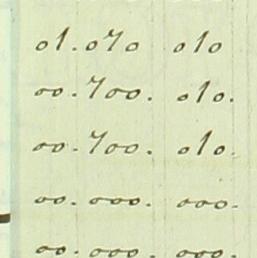 01. 070 010
00. 700. 010.
00. 700. 010.
00. 000. 000.
00. 000. 000.